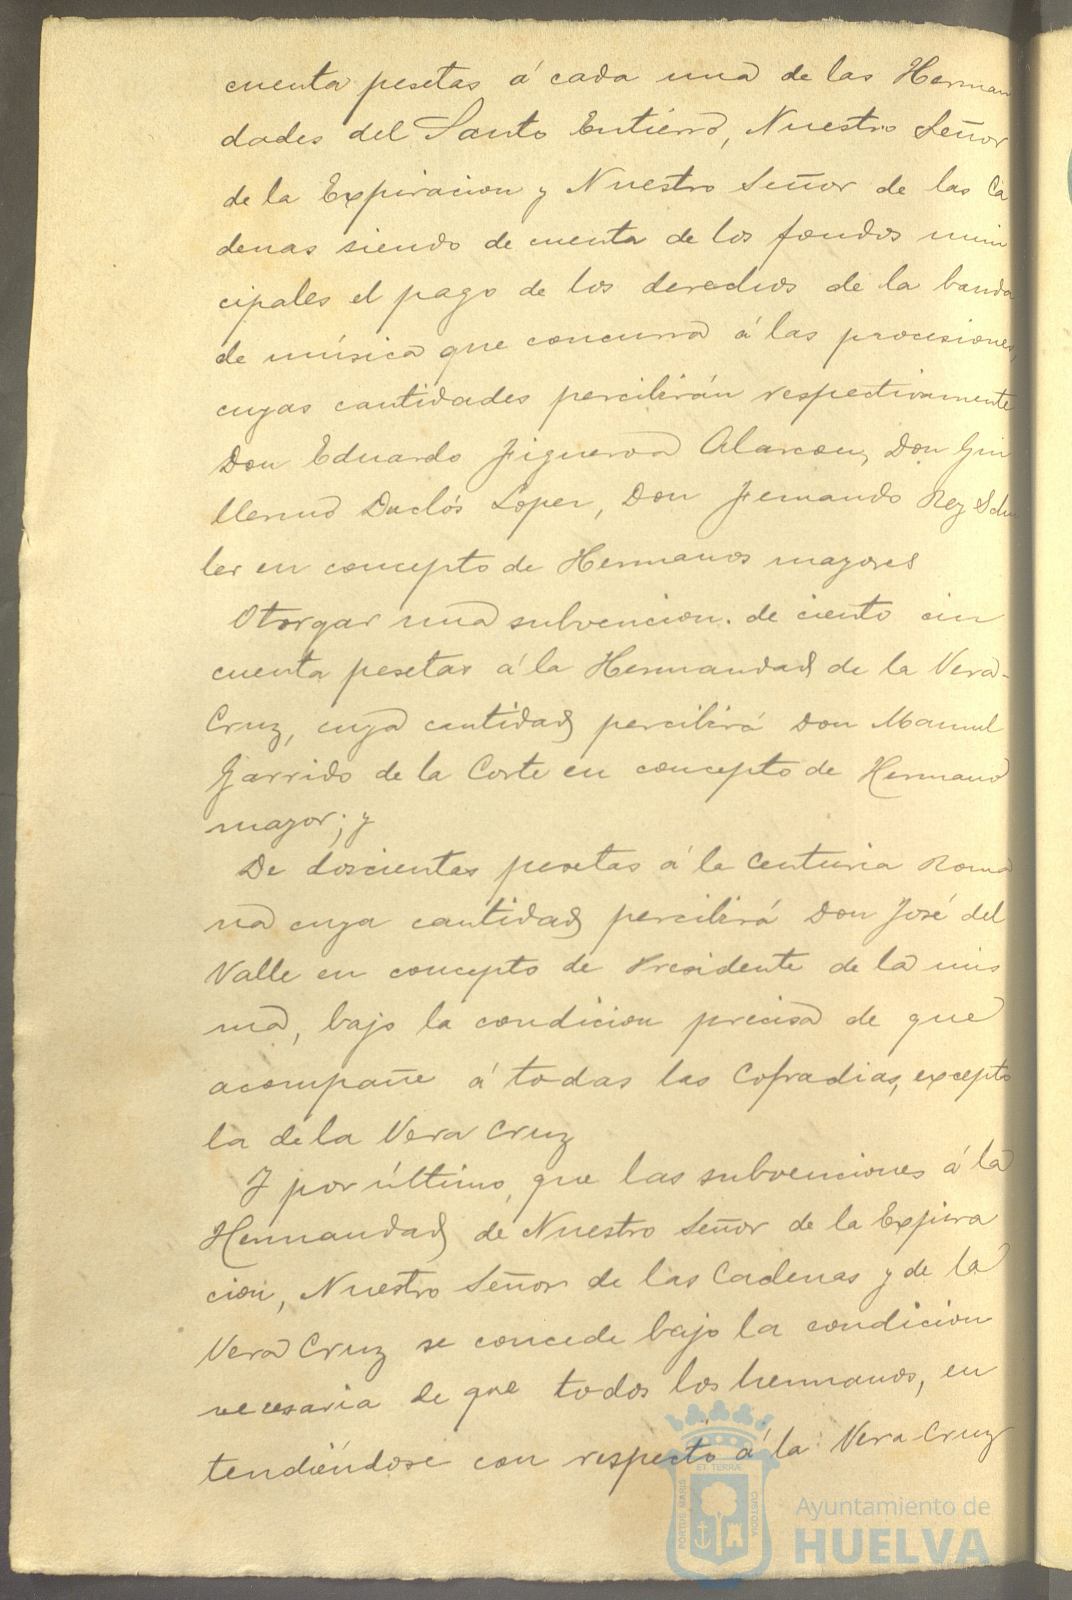 cuenta pesetas á cada una de las Herman
dades del Santo Entierro, Nuestro Señor
de la Expiracion y Nuestro Señor de las Ca
denas siendo de cuenta de los fondos muni
cipales el pago de los derechos de la banda
de música que concurra á las procesiones,
cuyas cantidades percibirán respectivamente
Don Eduardo Figueroa Alarcon, Don Gui
llermo Duclós Lopez, Don Fernando Rey Schu
ler en concepto de Hermanos mayores
Otorgar una subvencion de ciento cin
cuenta pesetas á la Hermandad de la Vera-
Cruz, cuya cantidad percibirá Don Manuel
Garrido de la Corte en concepto de Hermano
mayor; y
De doscientas pesetas á la Centuria Roma
na cuya cantidad percibirá Don José del
Valle en concepto de Presidente de la mis
ma, bajo la condicion precisa de que
acompañe á todas las Cofradias, excepto
la de la Vera Cruz
Y por último, que las subvenciones á la
Hermandad de Nuestro Señor de la Expira
cion, Nuestro Señor de las Cadenas y de la
Vera Cruz se concede bajo la condicion
necesaria de que todos los hermanos, en
tendiéndose con respecto á la Vera Cruz
PORTUS MARIS ET TERRÆ CUSTODIA
Ayuntamiento de
HUELVA